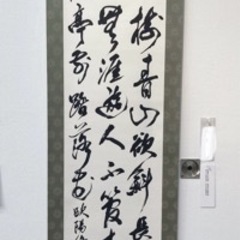 樹青山欲斜長
無涯遊人不管春
亭前踏落花歐陽